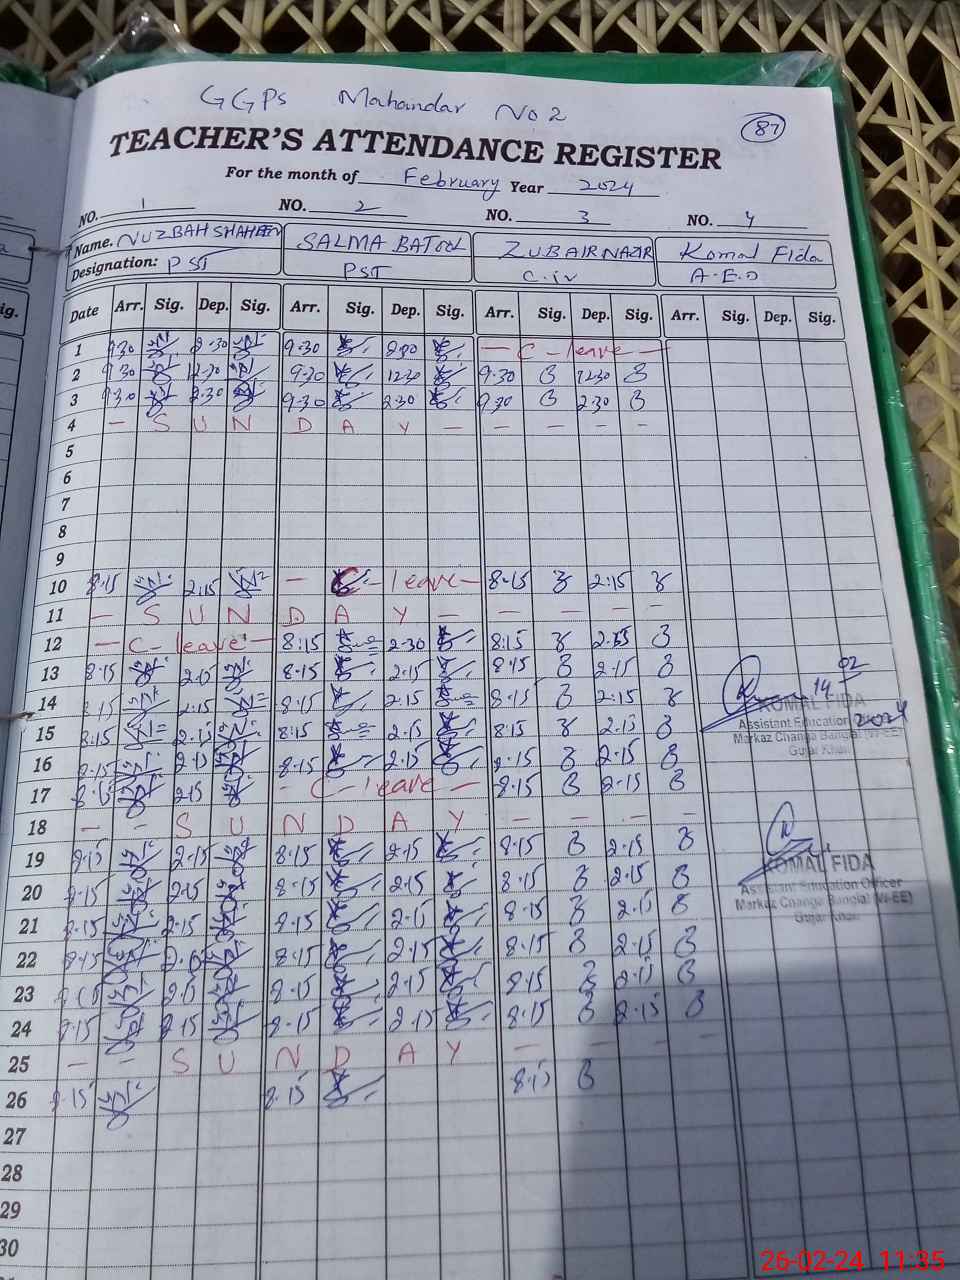 GGPS Mahandar No 2
87
TEACHER'S ATTENDANCE REGISTER
For the month of February Year 2024
NO. 1 NO. 2 NO. 3 NO. 4
Name. NUZBAH SHAHEEN SALMA BATOOL ZUBAIR NAZIR Komal Fida
Designation: PST PST C.iv A.E.O
Date Arr. Sig. Dep. Sig. Arr. Sig. Dep. Sig. Arr. Sig. Dep. Sig. Arr. Sig. Dep. Sig.
1 9.30 2.30 9.30 2.30 — C - leave —
2 9.30 12.30 9.30 12.30 9.30 12.30
3 9.30 2.30 9.30 2.30 9.30 2.30
4 — S U N D A Y — — — — —
5
6
7
8
9
10 8.15 2.15 — C - leave — 8.15 2.15
11 — S U N D A Y — — — — —
12 — C - leave — 8:15 2.30 8:15
13 8.15 2.15 8.15 2.15 8.15 2.15
14 8.15 2.15 8.15 2.15 8.15 2.15
15 8.15 2.15 8:15 2.15 8.15 2.15
16 8.15 2.15 8.15 2.15 8.15 2.15
17 8.15 2.15 - C - leave — 8.15 2.15
18 — — S U N D A Y — — — —
19 8.15 2.15 8.15 2.15 8.15 2.15
20 8.15 2.15 8.15 2.15 8.15 2.15
21 8.15 2.15 8.15 2.15 8.15 2.15
22 8.15 2.15 8.15 2.15 8.15 2.15
23 8.15 2.15 8.15 2.15 8.15 2.15
24 8.15 2.15 8.15 2.15 8.15 2.15
25 — — S U N D A Y — — — —
26 8.15 8.15 8.15
27
28
29
30
14 02 2024
KOMAL FIDA
Assistant Education
Markaz Changa Bangial (W-EE)
Gujar Khan
KOMAL FIDA
Assistant Education Officer
Markaz Changa Bangial (W-EE)
Gujar Khan
26-02-24 11:35